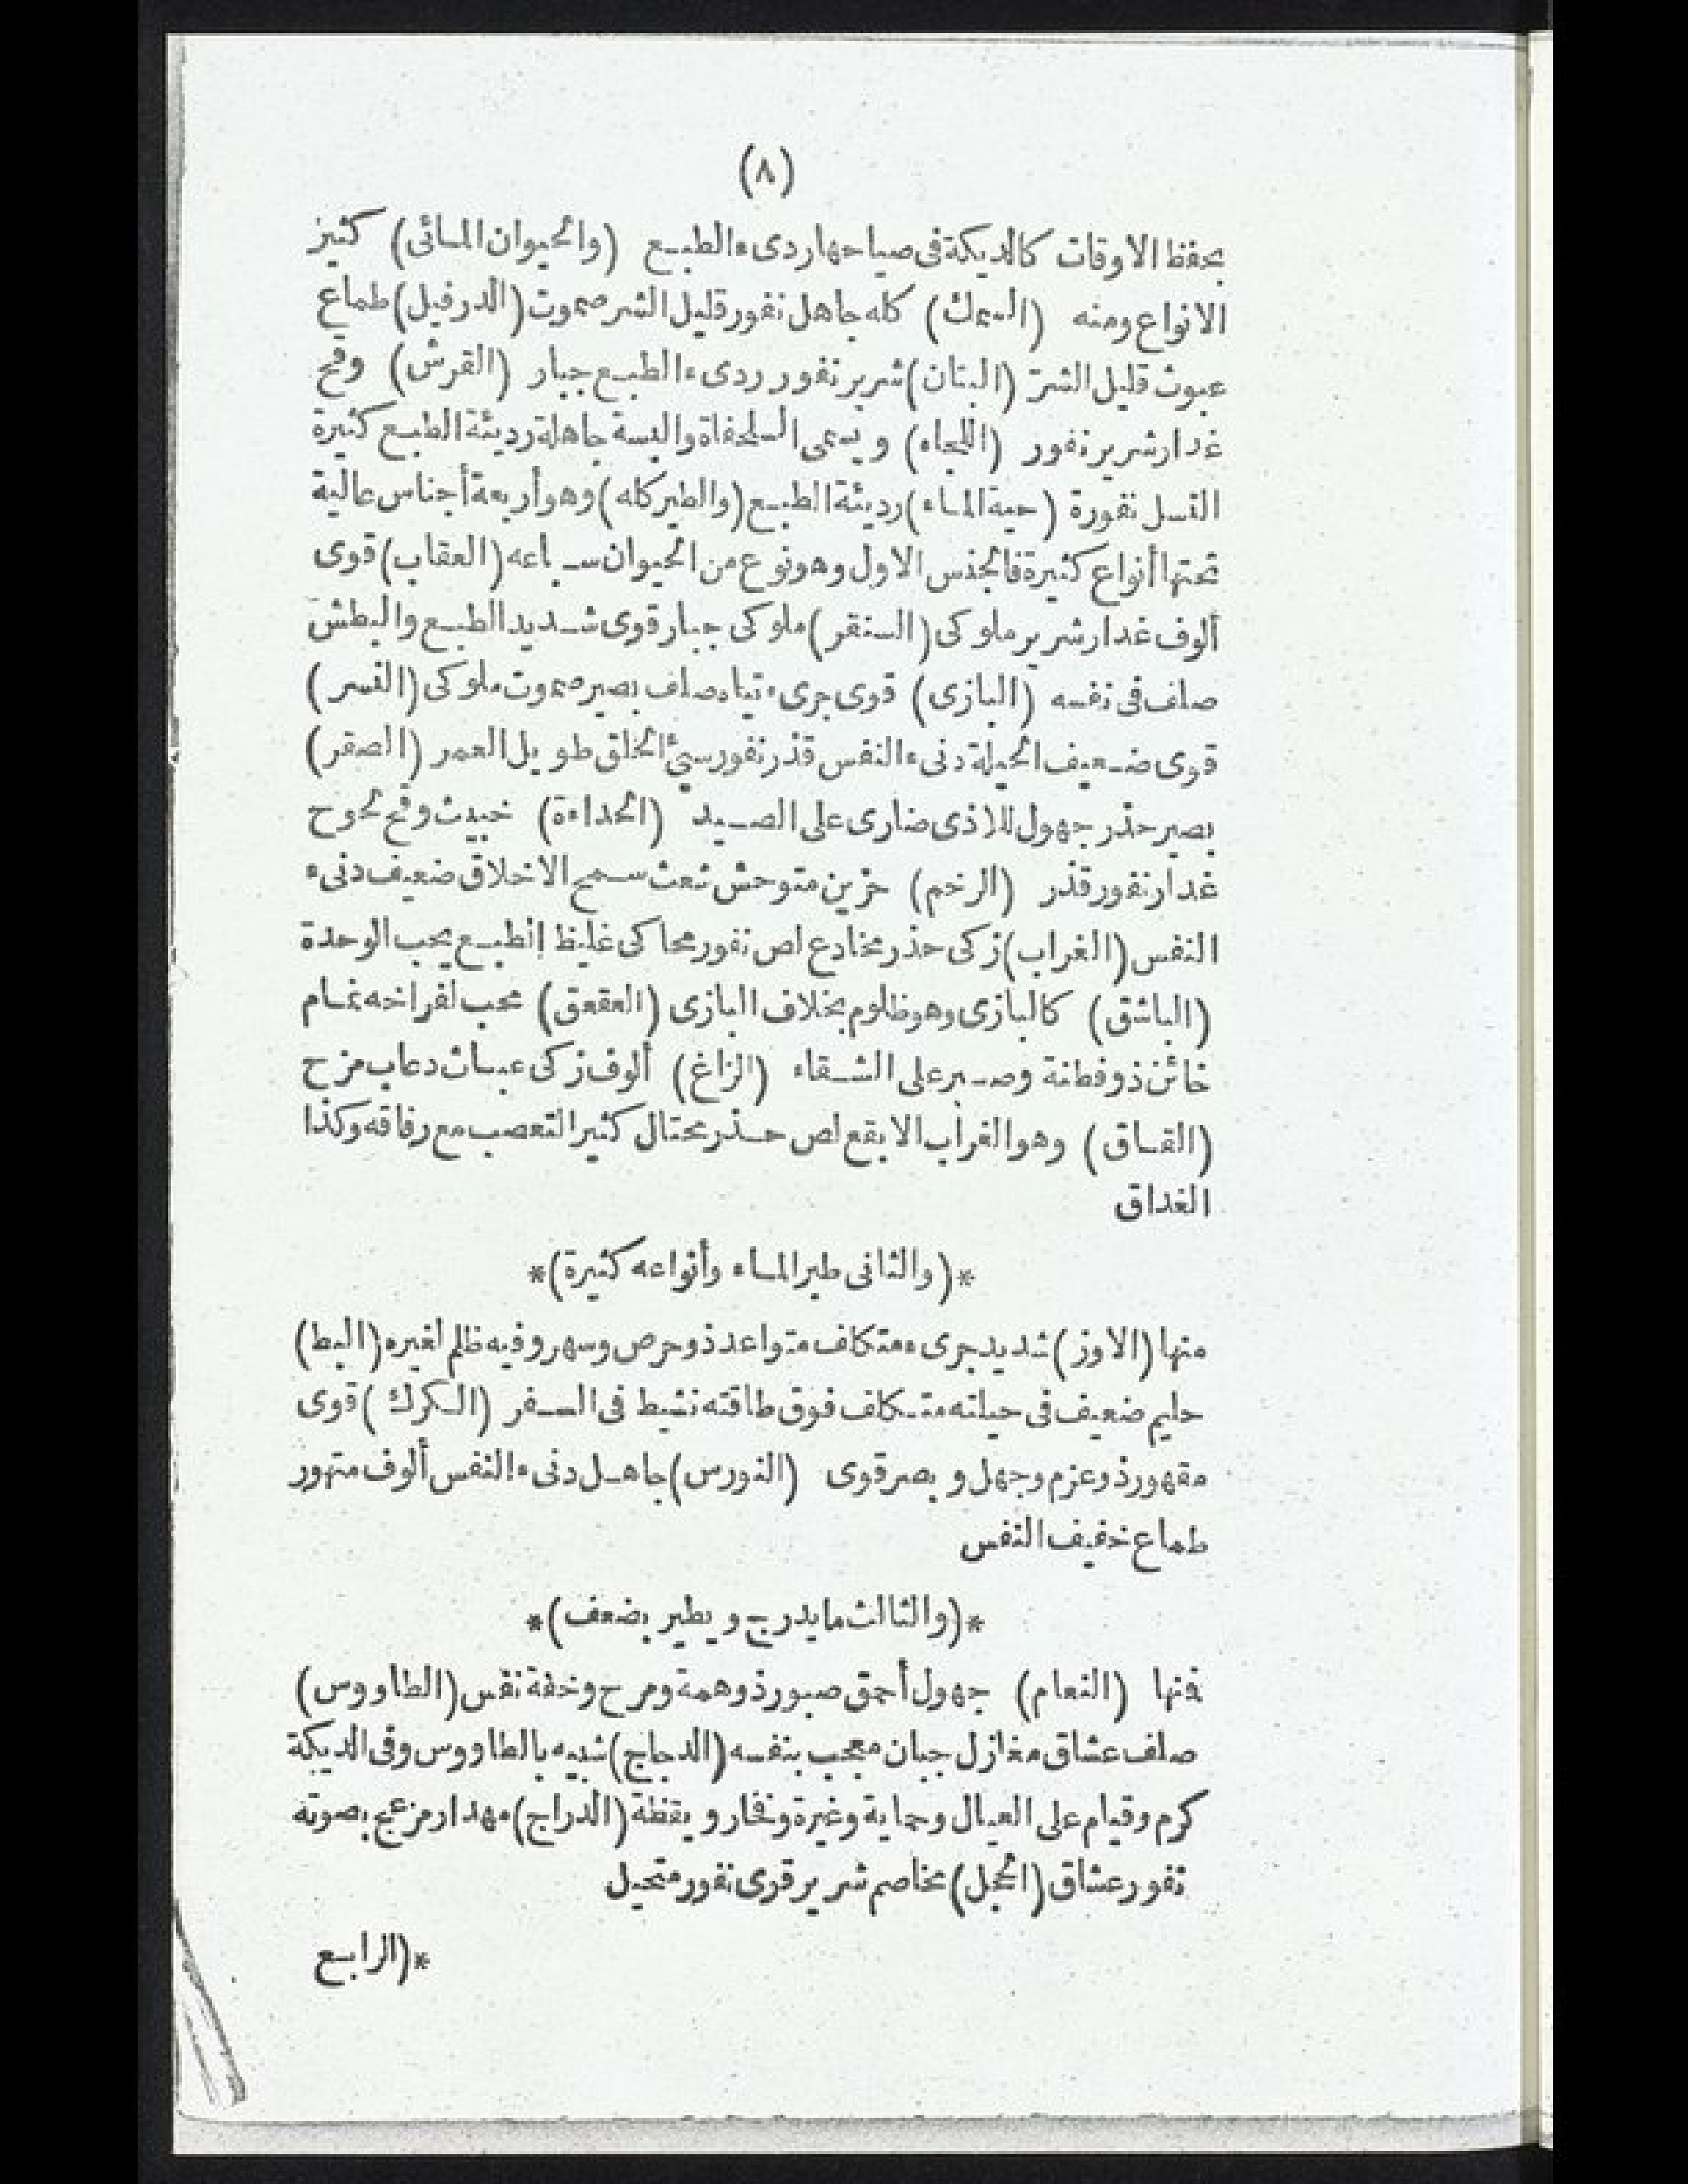 (٨)
بحفظ الاوقات كالديكة فى صياحها ردىء الطبع (والحيوان المائى) كثير
الانواع ومنه (السمك) كله جاهل نفور قليل الشر صموت (الدرفيل) طماع
عبوث قليل الشرّ (البنان) شرير نفور ردىء الطبع جبار (القرش) وقح
غدار شرير نفور (اللجاه) ويسمى السلحفاة والبسة جاهلة رديئة الطبع كثيرة
النسل نفورة (حية الماء) رديئة الطبع (والطير كله) وهو أربعة أجناس عالية
تحتها أنواع كثيرة فالجنس الاول وهو نوع من الحيوان سباعه (العقاب) قوى
ألوف غدار شرير ملوكى (السنقر) ملوكى جبار قوى شديد الطبع والبطش
صلف فى نفسه (البازى) قوى جرىء تياه صلف بصير صموت ملوكى (النسر)
قوى ضعيف الحيلة دنىء النفس قذر نفور سيئ الخلق طويل العمر (الصقر)
بصير حذر جهول للاذى ضارى على الصيد (الحداءة) خبيث وقح لحوح
غدار نفور قذر (الرخم) حزين متوحش شعث سمح الاخلاق ضعيف دنىء
النفس (الغراب) زكى حذر مخادع لص نفور محاكى غليظ الطبع يحب الوحدة
(الباشق) كالبازى وهو ظلوم بخلاف البازى (العقعق) محب لفراخه نمام
خائن ذو فطنة وصبر على الشقاء (الزاغ) ألوف زكى عباث دعاب مزح
(القاق) وهو الغراب الابقع لص حذر محتال كثير التعصب مع رفاقه وكذا
الغداق
*(والثانى طير الماء وأنواعه كثيرة)*
منها (الاوز) شديد جرىء متكلف متواعد ذو حرص وسهر وفيه ظلم لغيره (البط)
حليم ضعيف فى حيلته متكلف فوق طاقته نشيط فى السفر (الكرك) قوى
مقهور ذو عزم وجهل وبصر قوى (النورس) جاهل دنىء النفس ألوف متهور
طماع خفيف النفس
*(والثالث ما يدرج ويطير بضعف)*
فمنها (النعام) جهول أحمق صبور ذو همة ومرح وخفة نفس (الطاووس)
صلف عشاق مغازل جبان معجب بنفسه (الدجاج) شبيه بالطاووس وفى الديكة
كرم وقيام على العيال وحماية وغيرة وفخار ويقظة (الدراج) مهدار مزعج بصوته
نفور عشاق (الحجل) مخاصم شرير قوى نفور متحيل
*(الرابع